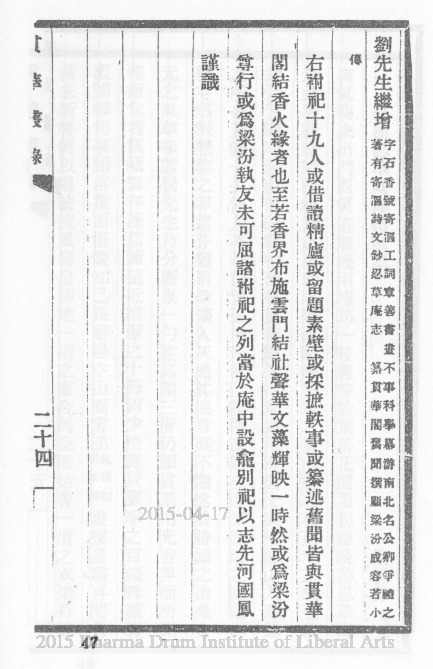 劉先生繼增
字石香號寄漚工詞章善書畫不事科舉幕游南北名公卿爭禮之
著有寄漚詩文鈔忍草庵志纂貫華閣舊聞撰顧梁汾成容若小
傳
右祔祀十九人或借讀精廬或留題素壁或採摭軼事或纂述舊聞皆與貫華
閣結香火緣者也至若香界布施雲門結社聲華文藻輝映一時然或爲梁汾
尊行或爲梁汾執友未可屈諸祔祀之列當於庵中設龕別祀以志先河國鳳
謹識
貫華叢錄
二十四
2015-04-17
47
2015 Dharma Drum Institute of Liberal Arts